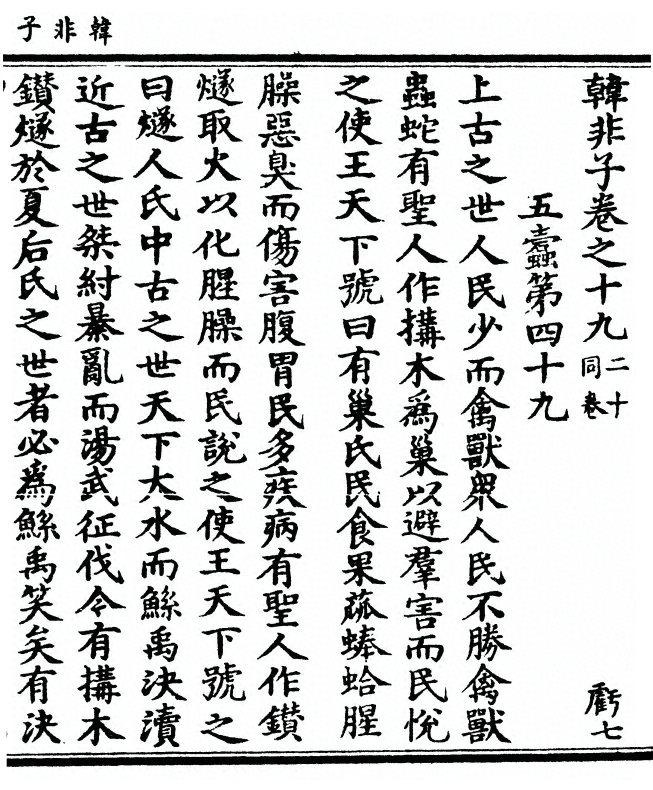 韓非子
韓非子卷之十九 二十同卷 虧七
五蠹第四十九
上古之世人民少而禽獸衆人民不勝禽獸
蟲蛇有聖人作搆木爲巢以避羣害而民悅
之使王天下號曰有巢氏民食果蓏蜯蛤腥
臊惡臭而傷害腹胃民多疾病有聖人作鑚
燧取火以化腥臊而民說之使王天下號之
曰燧人氏中古之世天下大水而鯀禹決瀆
近古之世桀紂暴亂而湯武征伐今有搆木
鑚燧於夏后氏之世者必爲鯀禹笑矣有決